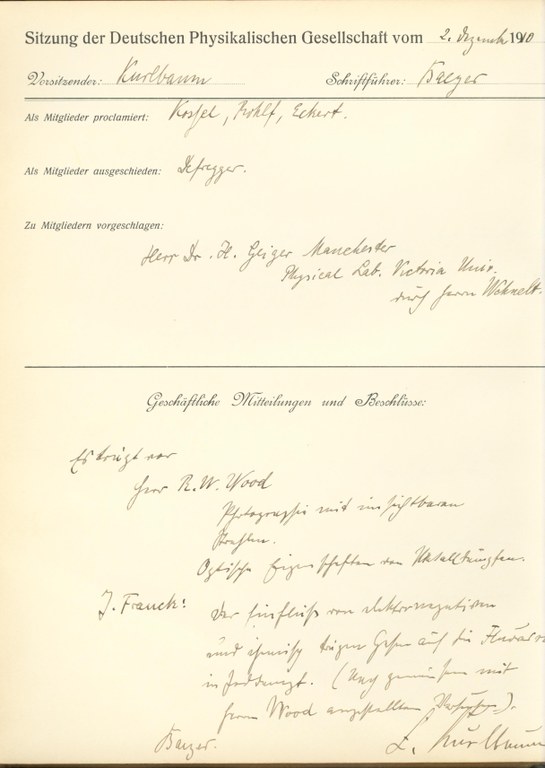 Sitzung der Deutschen Physikalischen Gesellschaft vom 2. Dezemb 1910
Vorsitzender: Kurlbaum Schriftführer: Baeyer
Als Mitglieder proclamiert: Kossel, Rohlf, Eckert.
Als Mitglieder ausgeschieden: Defregger.
Zu Mitgliedern vorgeschlagen:
Herr Dr. H. Geiger Manchester
Physical Lab. Victoria Univ.
durch Herrn Wehnelt.
Geschäftliche Mitteilungen und Beschlüsse:
Es trägt vor
Herr R. W. Wood
Photographie mit unsichtbaren
Strahlen.
Optische Eigenschaften von Metalldämpfen.
J. Franck: Der Einfluß von elektronegativen
und chemisch trägen Gasen auf die Fluores
in Joddampf. (Nach gemeinsam mit
Herrn Wood angestellten Versuchen).
Baeyer. Kurlbaum